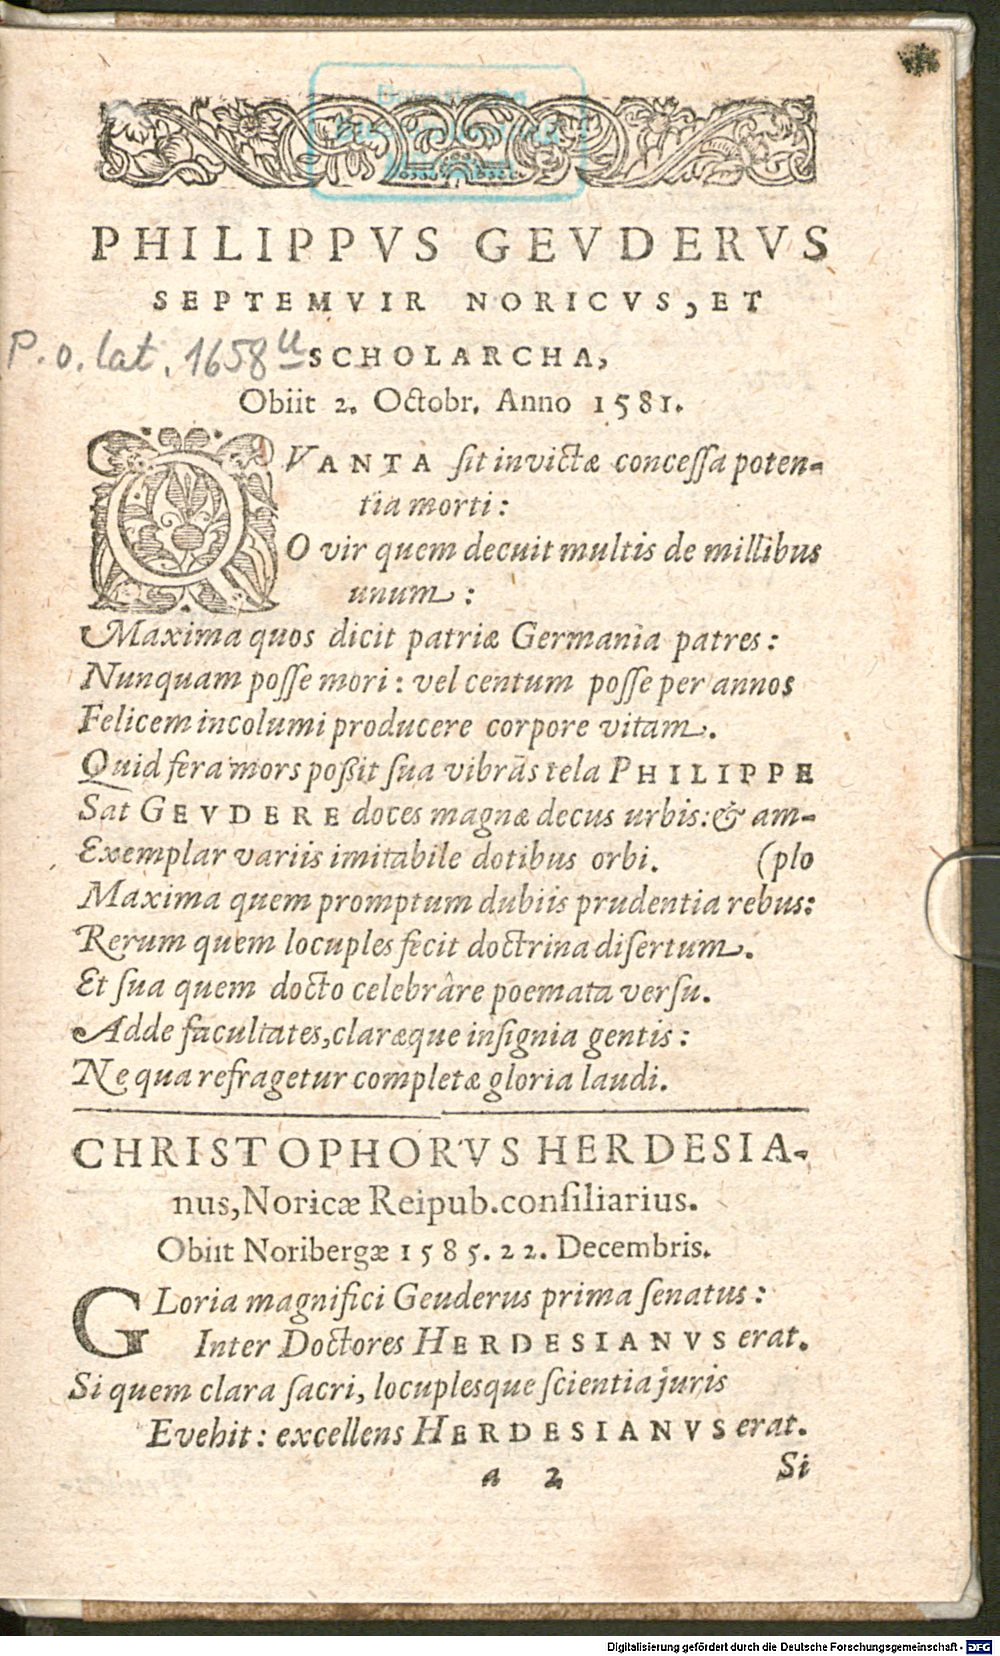 PHILIPPVS GEVDERVS
SEPTEMVIR NORICVS, ET
P. o. lat. 1658 u
SCHOLARCHA,
Obiit 2. Octobr. Anno 1581.
QVANTA sit invictæ concessa poten-
tia morti:
O vir quem decuit multis de millibus
unum:
Maxima quos dicit patriæ Germania patres:
Nunquam posse mori: vel centum posse per annos
Felicem incolumi producere corpore vitam.
Quid fera mors poßit sua vibrãs tela PHILIPPE
Sat GEVDERE doces magnæ decus urbis: & am-
Exemplar variis imitabile dotibus orbi. (plo
Maxima quem promptum dubiis prudentia rebus:
Rerum quem locuples fecit doctrina disertum.
Et sua quem docto celebrâre poemata versu.
Adde facultates, claræque insignia gentis:
Ne qua refragetur completæ gloria laudi.
CHRISTOPHORVS HERDESIA-
nus, Noricæ Reipub. consiliarius.
Obiit Noribergæ 1585. 22. Decembris.
GLoria magnifici Geuderus prima senatus:
Inter Doctores HERDESIANVS erat.
Si quem clara sacri, locuplesque scientia juris
Evehit: excellens HERDESIANVS erat.
a 2 Si
Digitalisierung gefördert durch die Deutsche Forschungsgemeinschaft - DFG